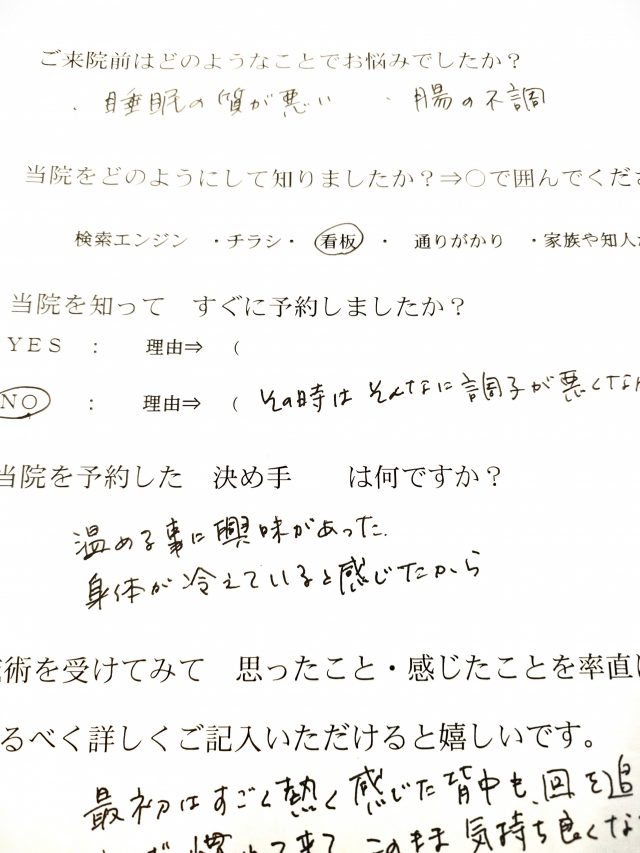 ご来院前はどのようなことでお悩みでしたか？
・睡眠の質が悪い ・腸の不調
当院をどのようにして知りましたか？⇒〇で囲んでくださ
検索エンジン ・チラシ・ 看板 ・ 通りがかり ・家族や知人
当院を知って すぐに予約しましたか？
YES ： 理由⇒ （
NO ： 理由⇒ （ その時はそんなに調子が悪くなか
当院を予約した 決め手 は何ですか？
温める事に興味があった.
身体が冷えていると感じたから
術を受けてみて 思ったこと・感じたことを率直に
るべく詳しくご記入いただけると嬉しいです。
最初はすごく熱く感じた背中も、回を追
慣れて来て このまま気持ち良くな